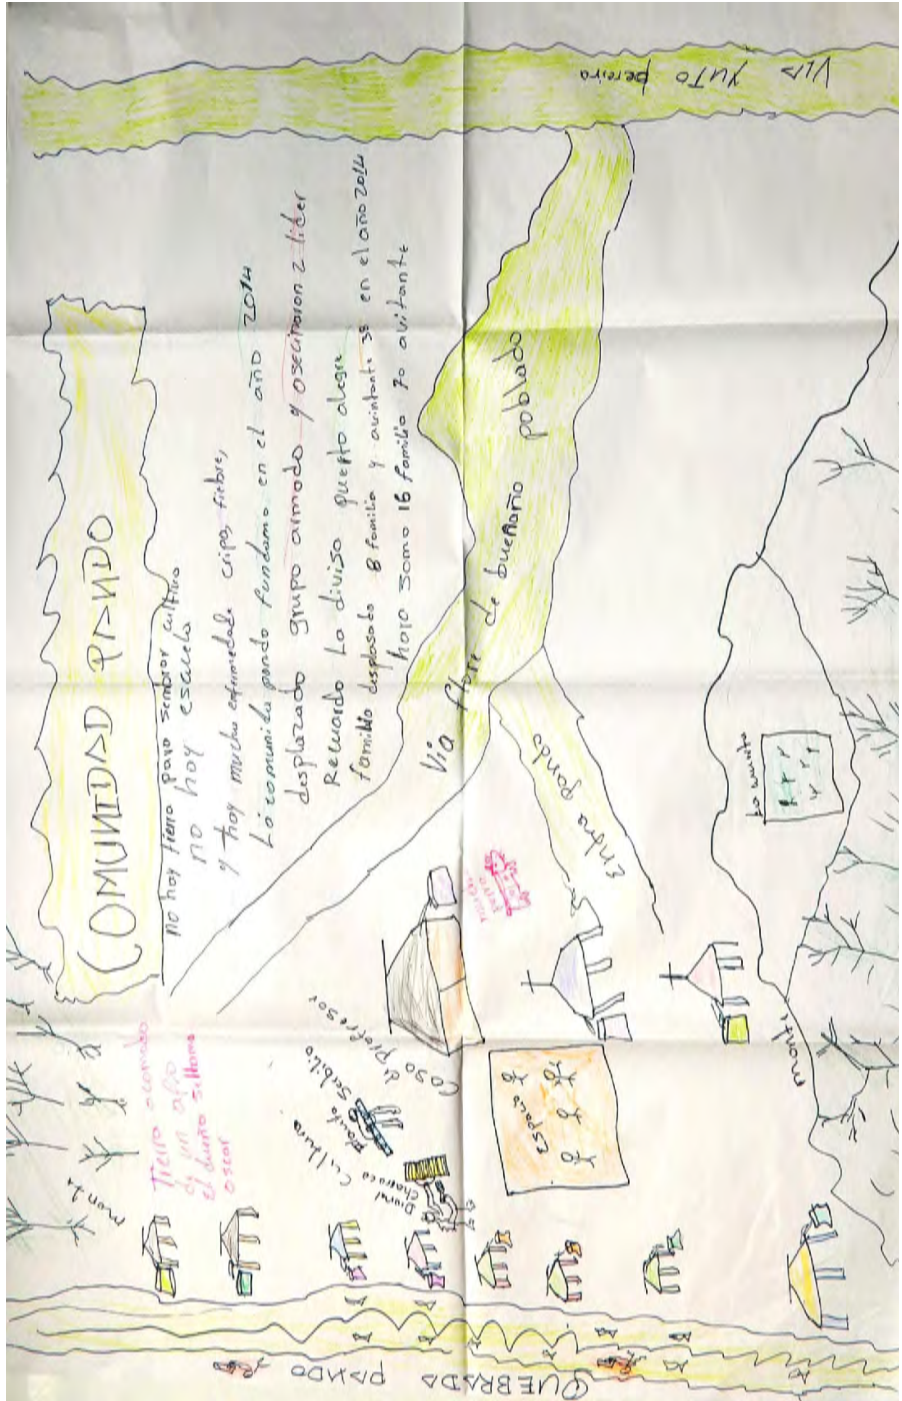 COMUNIDAD PANDO
no hay tierra para sembrar cultivo
no hay escuela
y hay mucha enfermedade gripa, fiebre,
La comunita pando fundamo en el año 2014
desplazado grupo armado y asecinaron 2 lider
Recuardo La divisa puerto alegre
familia desplasado 8 familia y avintante 38 en el año 2014
hoyo somo 16 familia 70 avitante
VIA YUTO pereira
Via flore de bueñaño poblado
Entra pando
monte
Tierra acomodo
de un afro
el dueño sellama
oscar
Casa de profresor
planta
Cultura
Espacio
monte
QUEBRADA PANDO